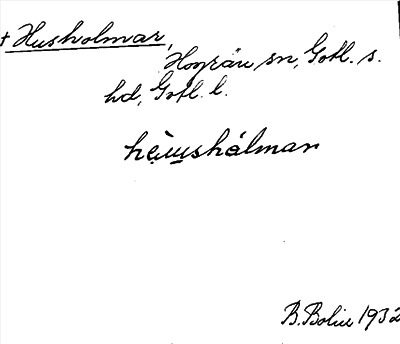 † Husholmar,
Hogrän sn, Gotl. s.
hd, Gotl. l.
hèu̯shálmar
B. Bolin 1932